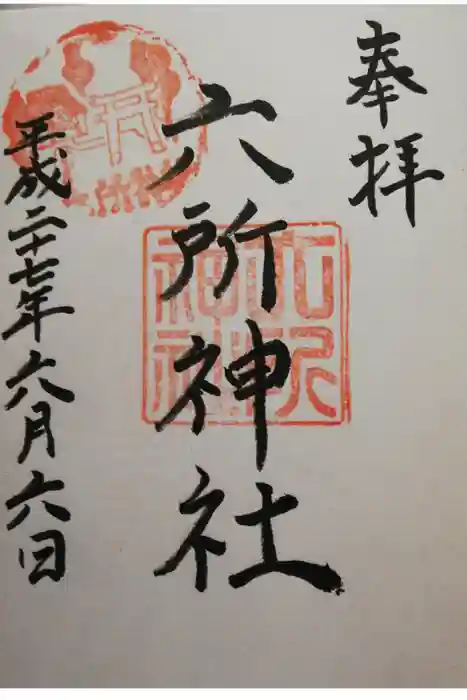 奉拝
六所神社
平成二十七年六月六日
六所神社